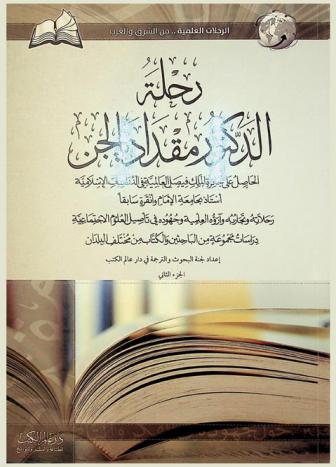 الرحلات العلمية .. من الشرق والغرب
رحلة
الدكتور مقداد يالجن
الحاصل على جائزة الملك فيصل العالمية في الدراسات الإسلامية
أستاذ بجامعة الإمام وأنقرة سابقا
رحلاته وتجاربه وآراؤه العلمية وجهوده في تأصيل العلوم الاجتماعية
دراسات مجموعة من الباحثين والكتاب من مختلف البلدان
إعداد لجنة البحوث والترجمة في دار عالم الكتب
الجزء الثاني
دار عالم الكتب
للطباعة والنشر والتوزيع